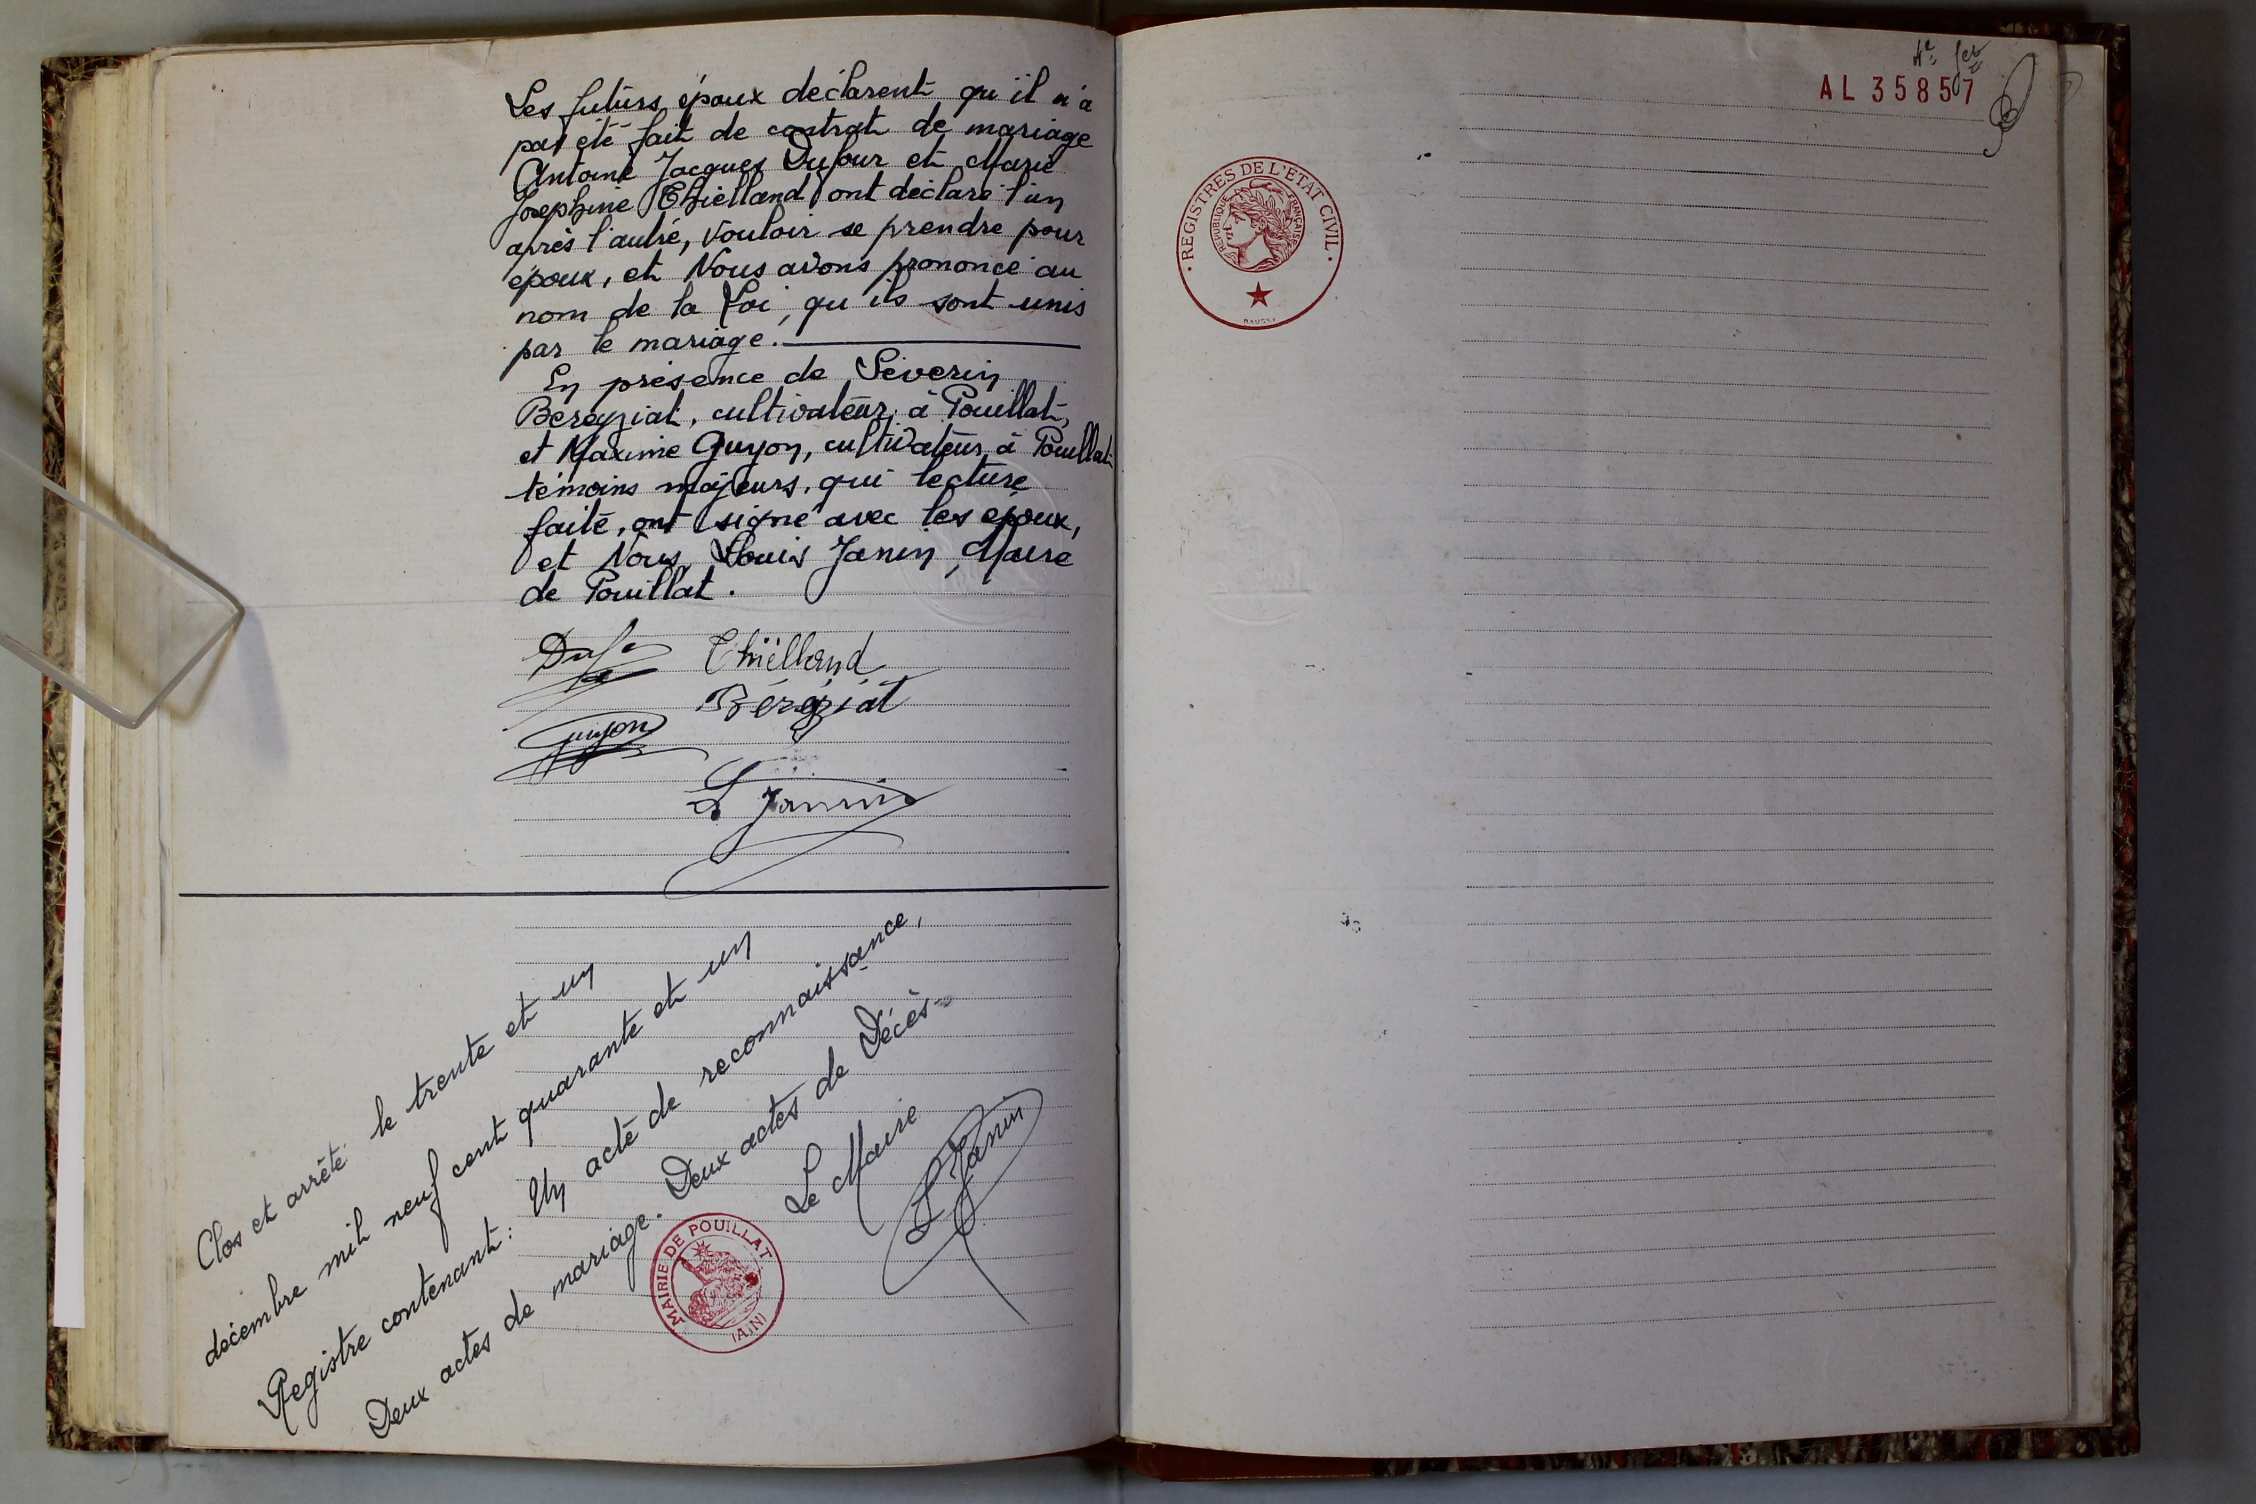 Les futurs époux déclarent qu'il n'a
pas été fait de contrat de mariage
Antoine Jacques Dufour et Marie
Josephine Thiëlland ont déclaré l'un
après l'autre, vouloir se prendre pour
époux, et Nous avons prononcé au
nom de la Loi, qu'ils sont unis
par le mariage.
En présence de Séverin
Béréziat, cultivateur, à Pouillat,
et Maxime Guyon, cultivateur, à Pouillat
témoins majeurs, qui lecture
faite, ont signé avec les époux,
et Nous, Louis Janin, Maire
de Pouillat.
Thiëlland
Béréziat
Guyon
L Janin
Clos et arrêté le trente et un
décembre mil neuf cent quarante et un
Registre contenant : Un acte de reconnaissance,
Deux actes de mariage. Deux actes de Décès
Le Maire
L Janin
MAIRIE DE POUILLAT
(AIN)
AL 35857
REGISTRES DE L'ETAT CIVIL
REPUBLIQUE FRANÇAISE